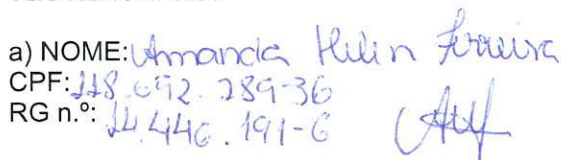 a) NOME: Amanda Helen Ferreira
CPF: 118.692.289-36
RG n.º: 14.446.191-6